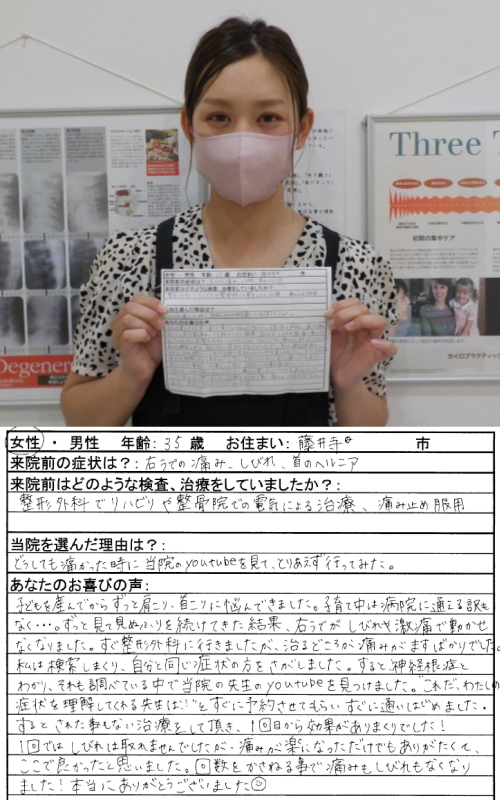 Three T
初期の集中ケア
カイロプラクティック
Degener
女性・男性 年齢:35歳 お住まい:藤井寺 市
来院前の症状は?:右うでの痛み、しびれ、首のヘルニア
来院前はどのような検査、治療をしていましたか?:
整形外科でリハビリや整骨院での電気による治療、痛み止め服用
当院を選んだ理由は?:
どうしても痛かった時に当院のyoutubeを見て、とりあえず行ってみた。
あなたのお喜びの声:
子どもを産んでからずっと肩こり・首こりに悩んできました。子育て中は病院に通える訳も
なく・・・。ずっと見て見ぬふりを続けてきた結果、右うでがしびれや激痛で動かせ
なくなりました。すぐ整形外科に行きましたが、治るどころか痛みがますばかりでした。
私は検索しまくり、自分と同じ症状の方をさがしました。すると神経根症と
わかり、それも調べている中で当院の先生のyoutubeを見つけました。"これだ、わたしの
症状を理解してくれる先生は!!"とすぐに予約させてもらいすぐに通いはじめました。
すると、された事もない治療をして頂き、1回目から効果がありまくりでした!
1回ではしびれは取れませんでしたが、痛みが楽になっただけでもありがたくて、
ここで良かったと思いました。回数をかさねる事で痛みもしびれもなくなり
ました!本当にありがとうございました